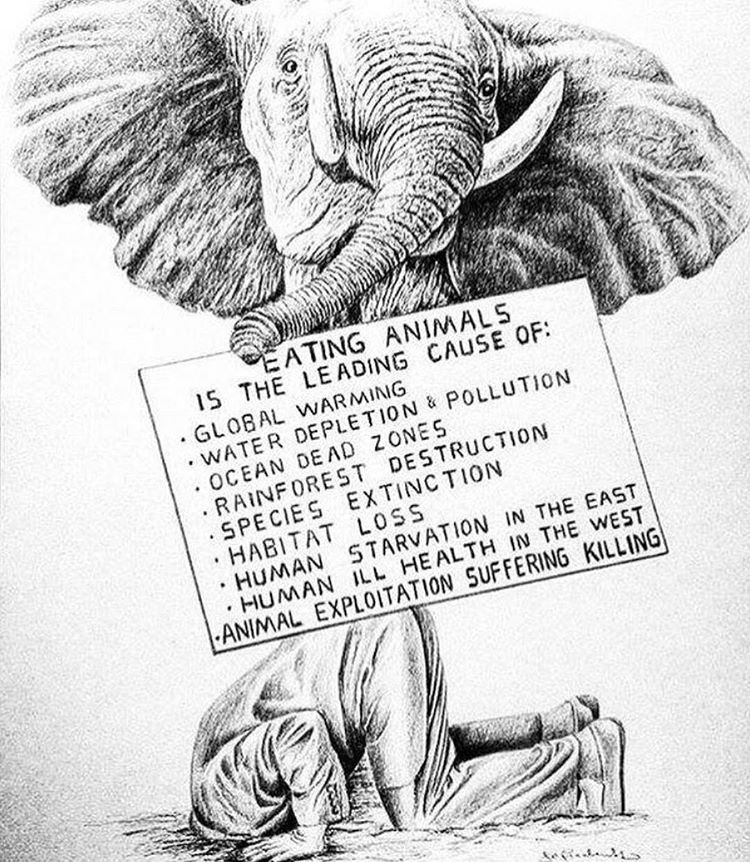 EATING ANIMALS
IS THE LEADING CAUSE OF:
• GLOBAL WARMING
• WATER DEPLETION & POLLUTION
• OCEAN DEAD ZONES
• RAINFOREST DESTRUCTION
• SPECIES EXTINCTION
• HABITAT LOSS
• HUMAN STARVATION IN THE EAST
• HUMAN ILL HEALTH IN THE WEST
• ANIMAL EXPLOITATION SUFFERING KILLING